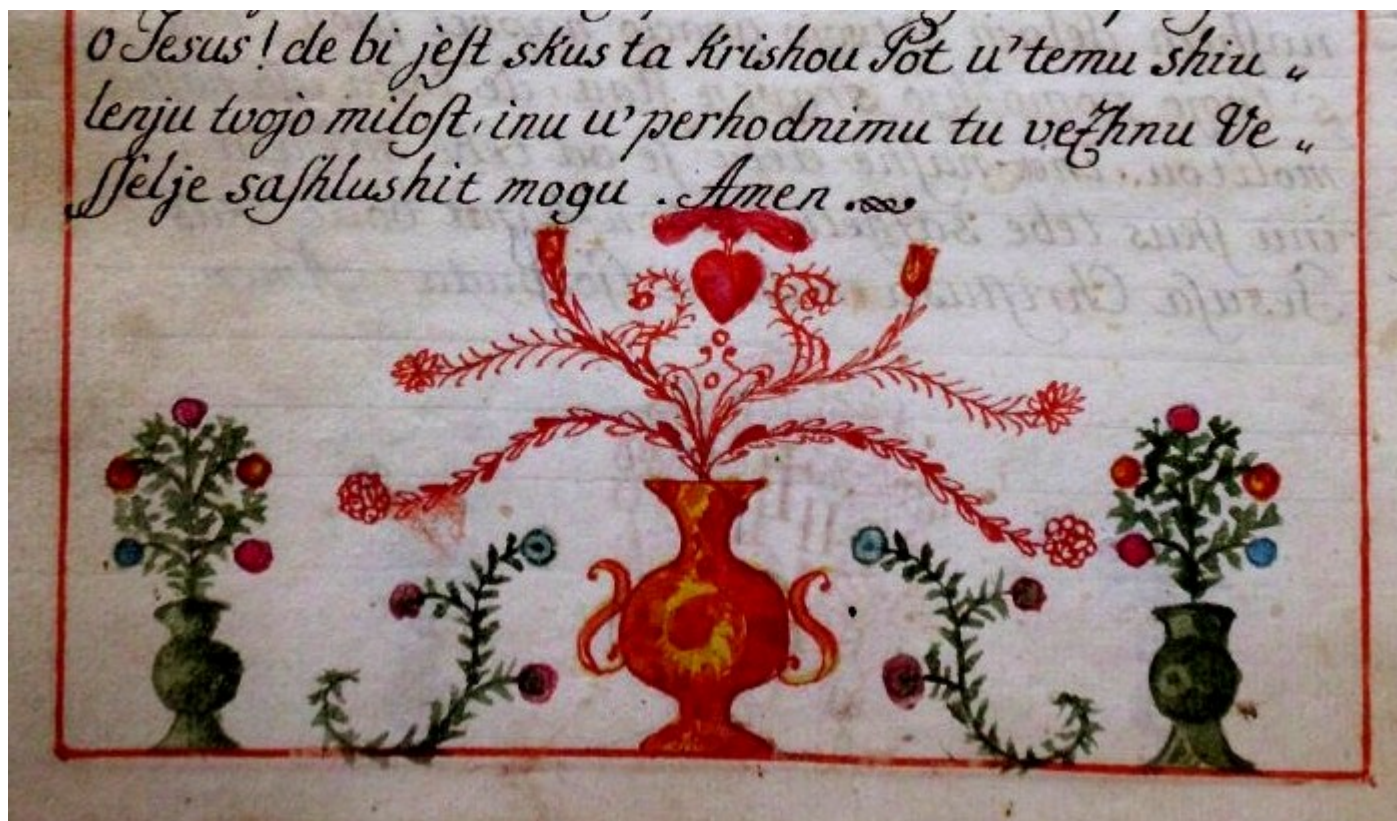 o Jesus! de bi jeſt skus ta Krishou Pot u' temu shiu „
lenju tvojo miloſt, inu u' perhodnimu tu vezhnu Ve „
ſſelje saſhlushit mogu . Amen .